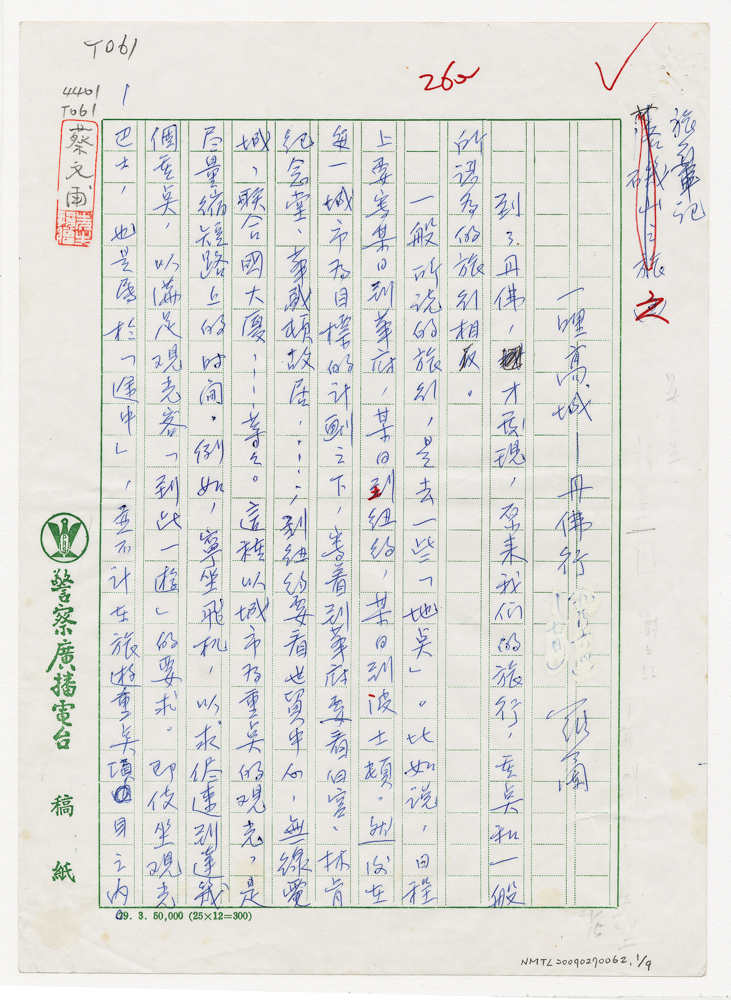 T061
260
4401
T061
1
蔡文甫
旅美筆記
落磯山之旅
之
一哩高城—丹佛行
羅蘭
到了丹佛,才發現,原來我們的旅行,重點和一般
所謂為的旅行相反。
一般所說的旅行,是去一些「地點」。比如說,日程
上要寫某日到華府,某日到紐約,某日到波士頓。然後在
每一城市為目標的計劃之下,寫著到華府要看白宮、林肯
紀念堂、華盛頓故居,……;到紐約要看世貿中心,無線電
城,聯合國大廈,……等等。這種以城市為重點的觀光,是
尽量縮短路上的时间。例如,寧坐飛机,以求儘速到達我
個重點,以滿足觀光客「到此一遊」的要求。即使坐觀光
巴士,也是屬於「途中」,並不計在旅遊重點項目之內
警察廣播電台 稿紙
69. 3. 50,000 (25×12=300)
NMTL20090270062, 1/9